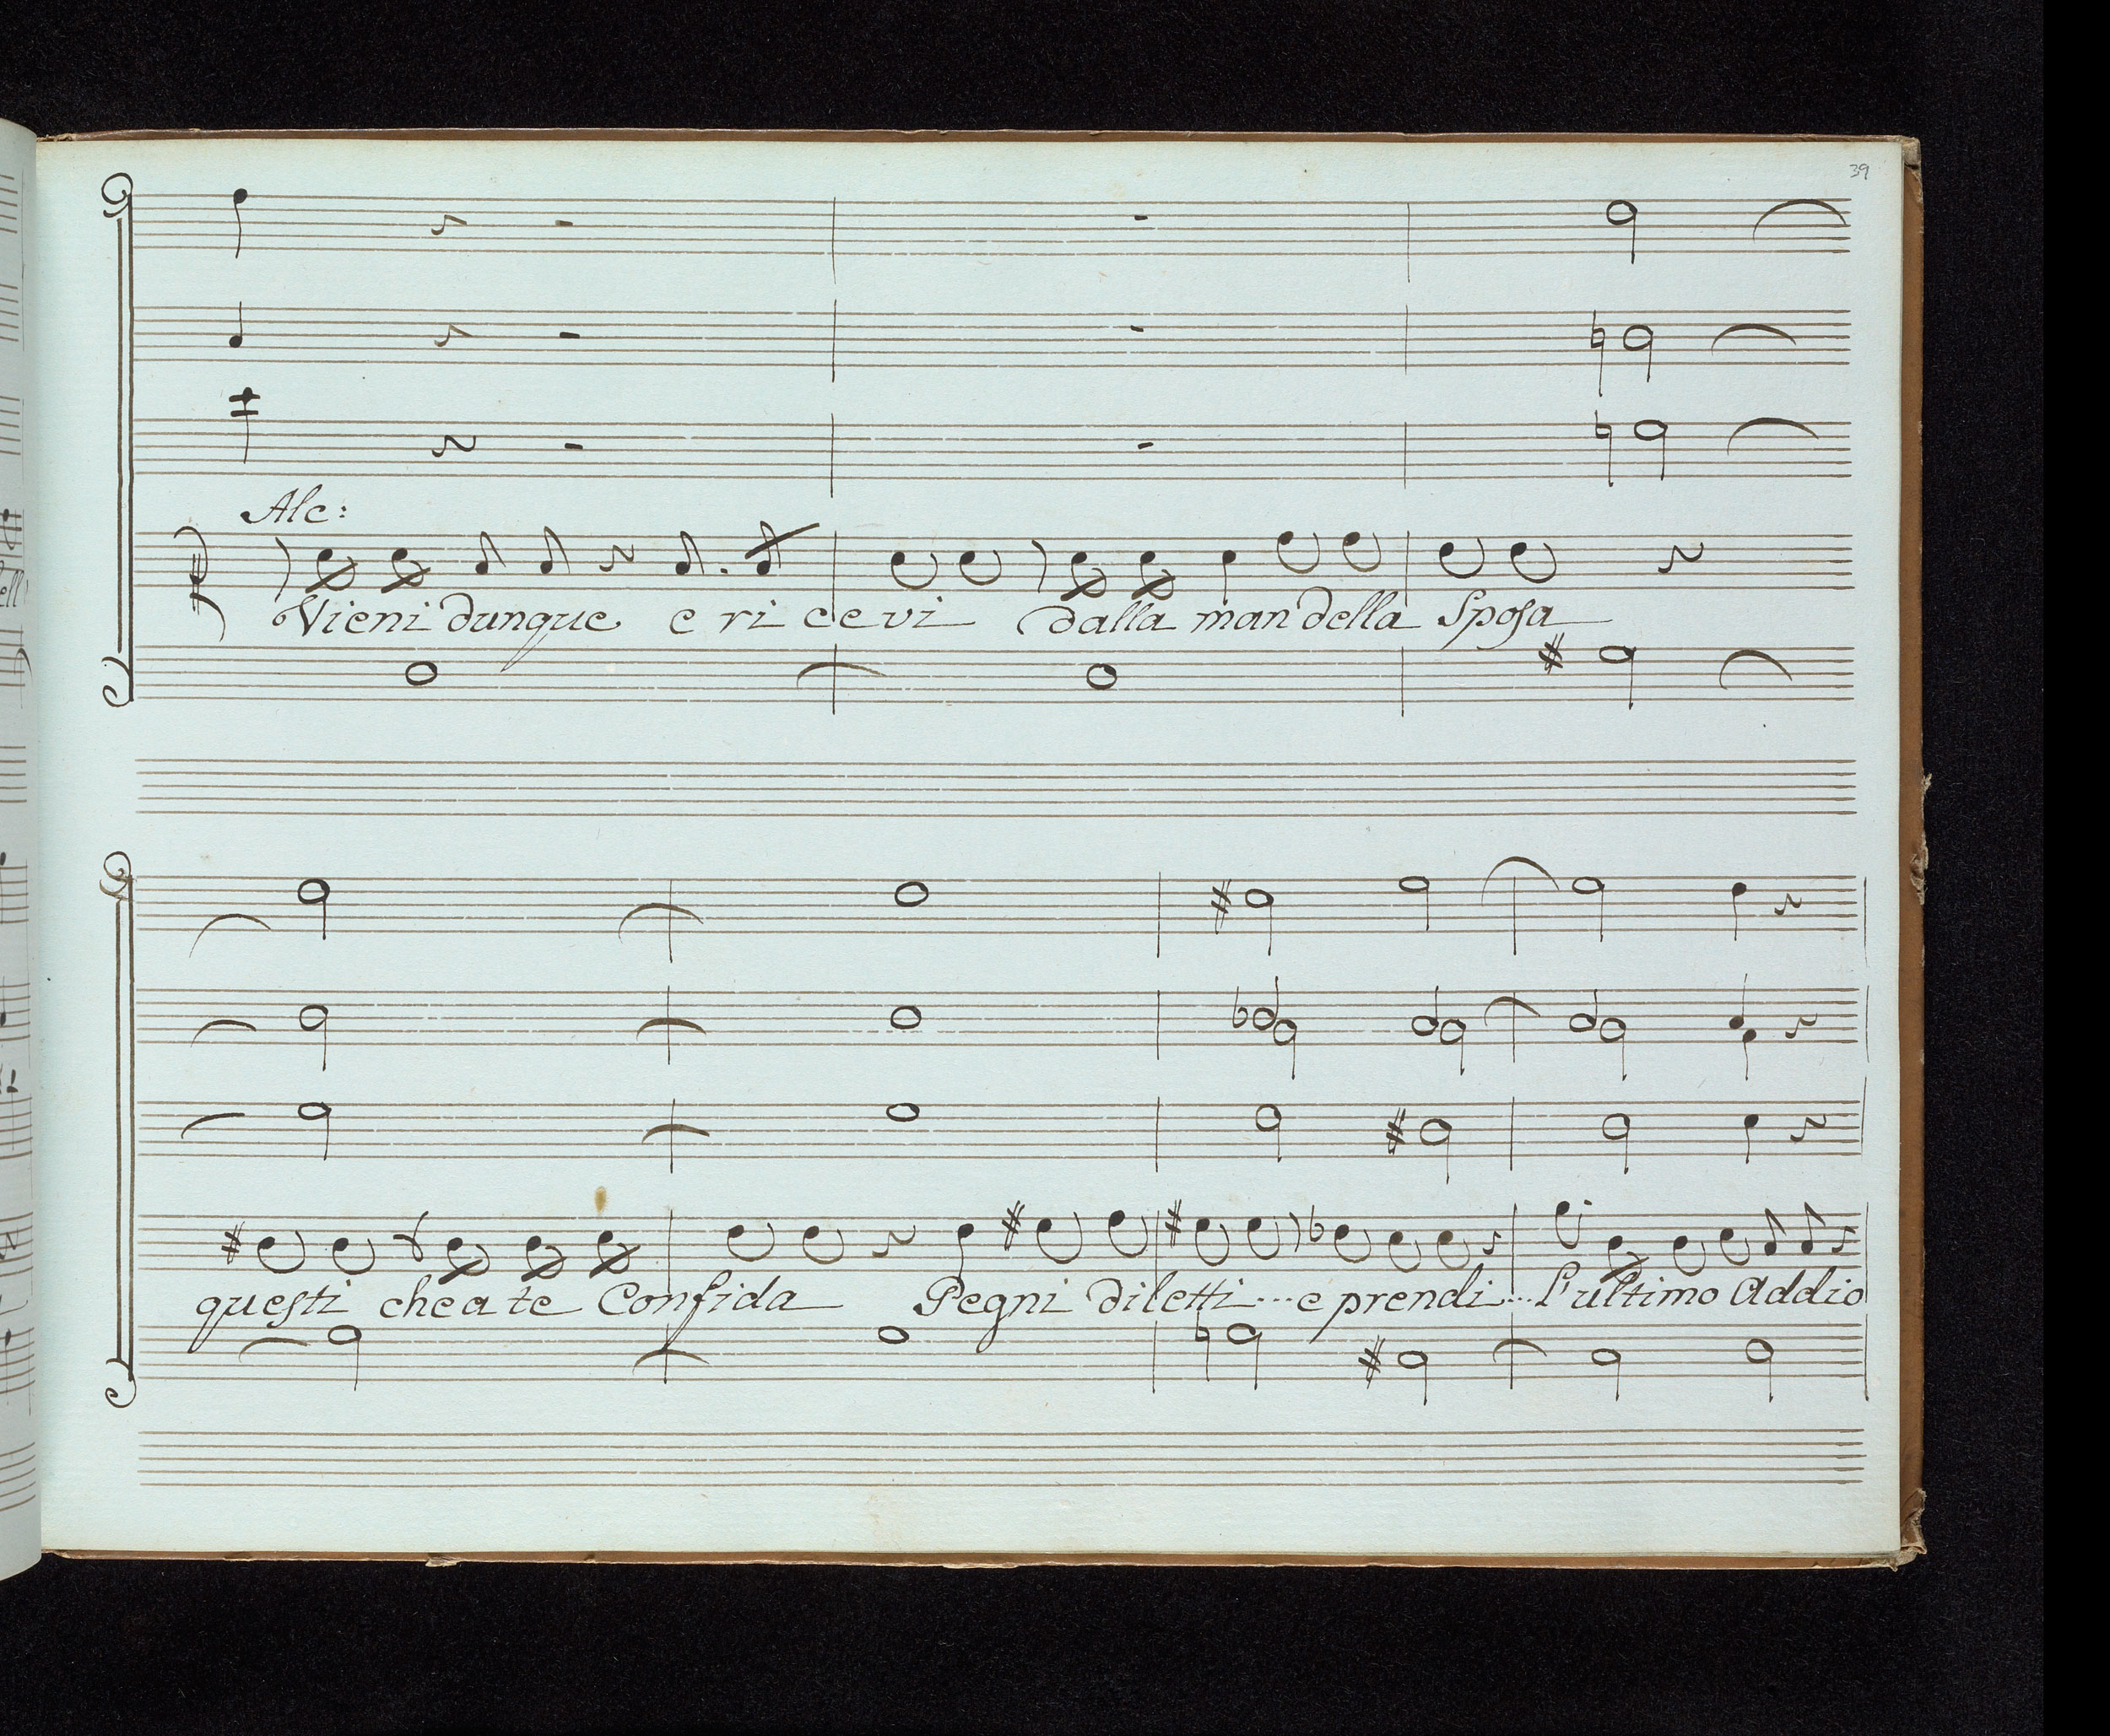 39
Alc:
Vieni dunque e ricevi dalla man della Sposa
questi che a te Confida Pegni diletti... e prendi... L'ultimo Addio